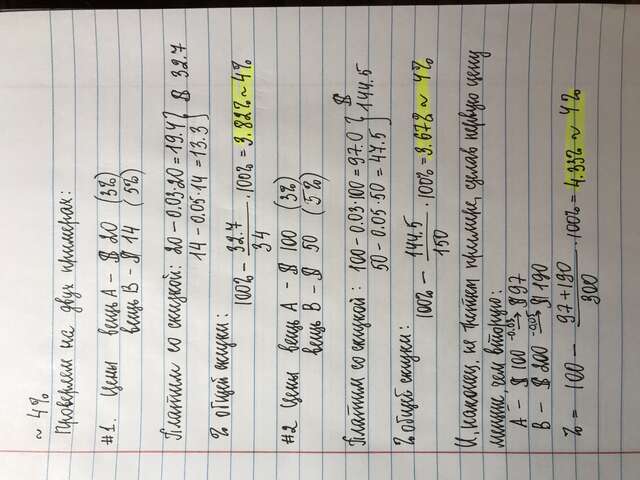 ~ 4%
Проверяем на двух примерах:
#1. Цены вещь A – $ 20 (3%)
вещь B – $ 14 (5%)
Платим со скидкой: 20 – 0.03·20 = 19.4
14 – 0.05·14 = 13.3 } $ 32.7
% общей скидки:
100% – 32.7/34 · 100% = 3.82% ~ 4%
#2 Цены вещь A – $ 100 (3%)
вещь B – $ 50 (5%)
Платим со скидкой: 100 – 0.03·100 = 97.0
50 – 0.05·50 = 47.5 } $ 144.5
% общей скидки:
100% – 144.5/150 · 100% = 3.67% ~ 4%
И, наконец, на третьем примере, сделав первую цену
меньше, чем вторую:
A – $ 100 -0.03→ $ 97
B – $ 200 -0.05→ $ 190
% = 100 – 97+190/300 · 100% = 4.33% ~ 4%